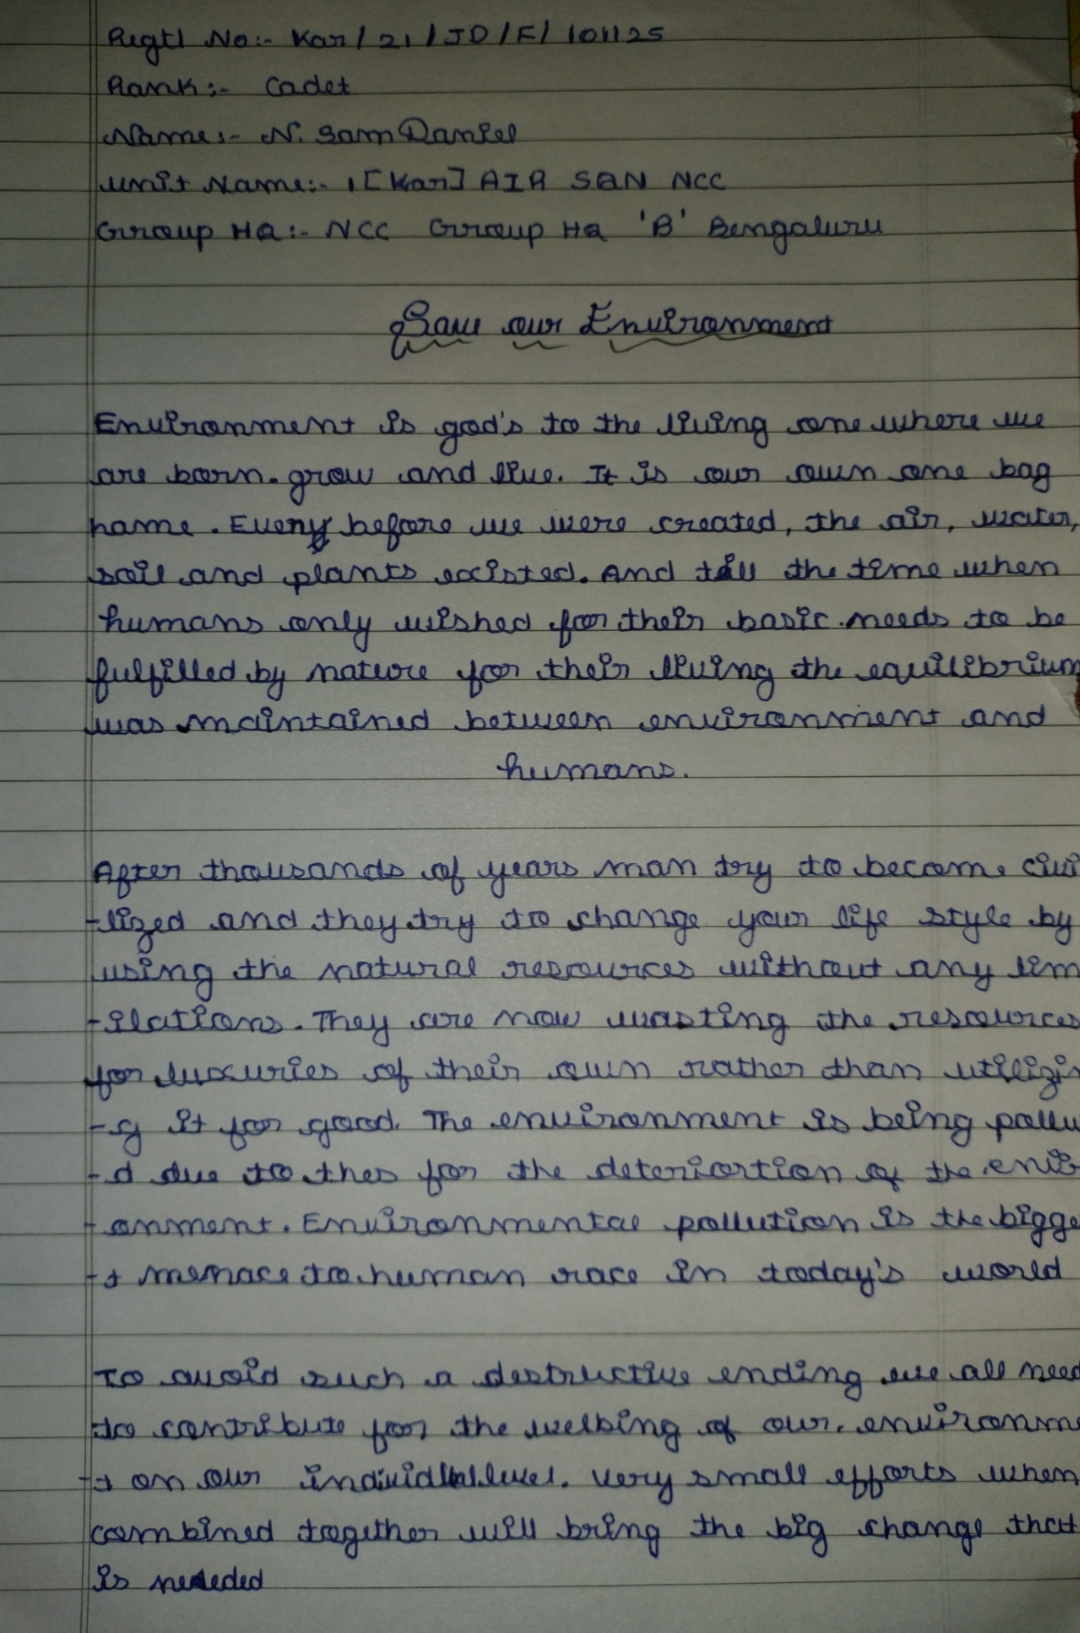 Regtl No:- Kar/21/JD/F/101125
Rank:- Cadet
Name:- N. Sam Daniel
Unit Name:- 1[Kar] AIR SQN NCC
Group HQ:- NCC Group HQ 'B' Bengaluru
Save our Environment
Environment is god's to the living one where we
are born. grow and live. It is our own one bag
home. Eveny before we were created, the air, water,
soil and plants existed. And till the time when
humans only wished for their basic needs to be
fulfilled by nature for their living the equilibrium
was maintained between environment and
humans.
After thousands of years man try to become civi
-lized and they try to change your life style by
using the natural resources without any lim
-ilations. They are now wasting the resources
for luxuries of their own rather than utilizi
-g it for good. The environment is being pollu
-d due to thes for the deteriortion of the envir
-onment. Environmental pollution is the bigge
-t menace to human race in today's world
To avoid such a destructive ending we all need
to contribute for the welbing of our environm
-t on our individual level. Very small efforts when
combined together will bring the big change that
is needed